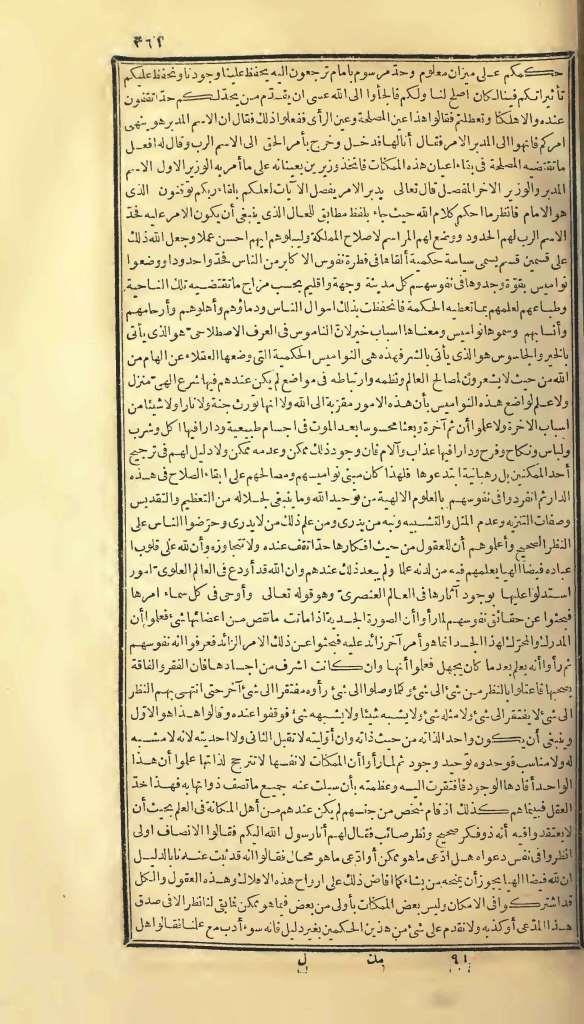 ٣٦١
حكمكم على ميزان معلوم وحد مرسوم بامام ترجعون اليه يحفظ علينا وجودنا ونحفظ عليكم
تأثيراتكم فينا لكان اصلح لنا ولكم فالجأوا الى الله عسى ان يقدم من يحد لكم حدا تقفون
عنده والا هلكنا وتعطلتم فقالوا هذا عين المصلحة وعين الرأى ففعلوا ذلك فقال ان الاسم المدبر هو ينهى
امركم فانهوا الى المدبر الامر فقال أنا لها فدخل وخرج بأمر الحق الى الاسم الرب وقال له افعل
ما تقتضيه المصلحة فى بقاء اعيان هذه الممكنات فاتخذ وزيرين يعينانه على ما أمر به الوزير الاول الاسم
المدبر والوزير الاخر المفصل قال تعالى يدبر الامر يفصل الآيات لعلكم بلقاء ربكم توقنون الذى
هو الامام فانظر ما احكم كلام الله حيث جاء بلفظ مطابق للحال الذى ينبغى أن يكون الامر عليه فحد
الاسم الرب لهم الحدود ووضع لهم المراسم لاصلاح المملكة وليبلوهم ايهم احسن عملا وجعل الله ذلك
على قسمين قسم يسمى سياسة حكمية ألقاها فى فطرة نفوس الاكابر من الناس فحدوا حدودا ووضعوا
نواميس بقوة وجدوها فى نفوسهم كل مدينة وجهة واقليم بحسب مزاج ما تقتضيه تلك الناحية
وطباعهم لعلمهم بما تعطيه الحكمة فانحفظت بذلك اموال الناس ودماؤهم وأهلوهم وأرحامهم
وأنسابهم وسموها نواميس ومعناها اسباب خير لان الناموس فى العرف الاصطلاحى هو الذى يأتى
بالخير والجاسوس هو الذى يأتى بالشر فهذه هى النواميس الحكمية التى وضعها العقلاء عن الهام من
الله من حيث لا يشعرون لمصالح العالم ونظمه وارتباطه فى مواضع لم يكن عندهم فيها شرع الهى منزل
ولا علم لواضع هذه النواميس بأن هذه الامور مقربة الى الله ولا انها تورث جنة ولا نارا ولا شيئا من
اسباب الاخرة ولا علموا أن ثم آخرة وبعثا محسوسا بعد الموت فى اجسام طبيعية ودارا فيها اكل وشرب
ولباس ونكاح وفرح ودارا فيها عذاب وآلام فان وجود ذلك ممكن وعدمه ممكن ولا دليل لهم فى ترجيح
أحد الممكنين بل رهبانية ابتدعوها فلهذا كان مبنى نواميسهم ومصالحهم على ابقاء الصلاح فى هذه
الدار ثم انفردوا فى نفوسهم بالعلوم الالهية من توحيد الله وما ينبغى لجلاله من التعظيم والتقديس
وصفات التنزيه وعدم المثل والتشبيه ونبه من يدرى ومن علم ذلك من لا يدرى وحرضوا الناس على
النظر الصحيح وأعلموهم أن للعقول من حيث افكارها حدا تقف عنده ولا تتجاوزه وأن لله على قلوب
عباده فيضا الهيا يعلمهم فيه من لدنه علما ولم يبعد ذلك عندهم وان الله قد أودع فى العالم العلوى امور
استدلوا عليها بوجود آثارها فى العالم العنصرى وهو قوله تعالى وأوحى فى كل سماء امرها
فبحثوا عن حقائق نفوسهم لما رأوا أن الصورة الجسدية اذا ماتت ما نقص من اعضائها شئ فعلموا أن
المدرك والمحرك لهذا الجسد انما هو أمر آخر زائد عليه فبحثوا عن ذلك الامر الزائد فعرفوا انه نفوسهم
ثم رأوا أنه يعلم بعد ما كان يجهل فعلموا أنها وان كانت اشرف من اجسادها فان الفقر والفاقة
يصحبها فاعتلوا بالنظر من شئ الى شئ وكلما وصلوا الى شئ رأوه مفتقرا الى شئ آخر حتى انتهى بهم النظر
الى شئ لا يفتقر الى شئ ولا مثله شئ ولا يشبه شيئا ولا يشبهه شئ فوقفوا عنده وقالوا هذا هو الاول
وينبغى أن يكون واحد الذاته من حيث ذاته وان أوليته لا تقبل الثانى ولا احديته لانه لا مشبه
له ولا مناسب فوحدوه توحيد وجود ثم لما رأوا أن الممكنات لانفسها لا تترجح لذاتها علموا أن هذا
الواحد أفادها الوجود فافتقرت اليه وعظمته بأن سلبت عنه جميع ما تصف ذواتها به فهذا حد
العقل فبينما هم كذلك اذ قام شخص من جنسهم لم يكن عندهم من أهل المكانة فى العلم بحيث أن
لا يعتقدوا فيه أنه ذو فكر صحيح ونظر صائب فقال لهم أنا رسول الله اليكم فقالوا الانصاف اولى
انظروا فى نفس دعواه هل ادعى ما هو ممكن أو ادعى ما هو محال فقالوا انه قد ثبت عندنا بالدليل
ان لله فيضا الهيا يجوز أن يمنحه من يشاء كما افاض ذلك على ارواح هذه الافلاك وهذه العقول والكل
قد اشتركوا فى الامكان وليس بعض الممكنات بأولى من بعض فيما هو ممكن فما بقى لنا نظر الا فى صدق
هذا المدعى أو كذبه ولا نقدم على شئ من هذين الحكمين بغير دليل فانه سوء أدب مع علمنا فقالوا هل
٩١ مك ل